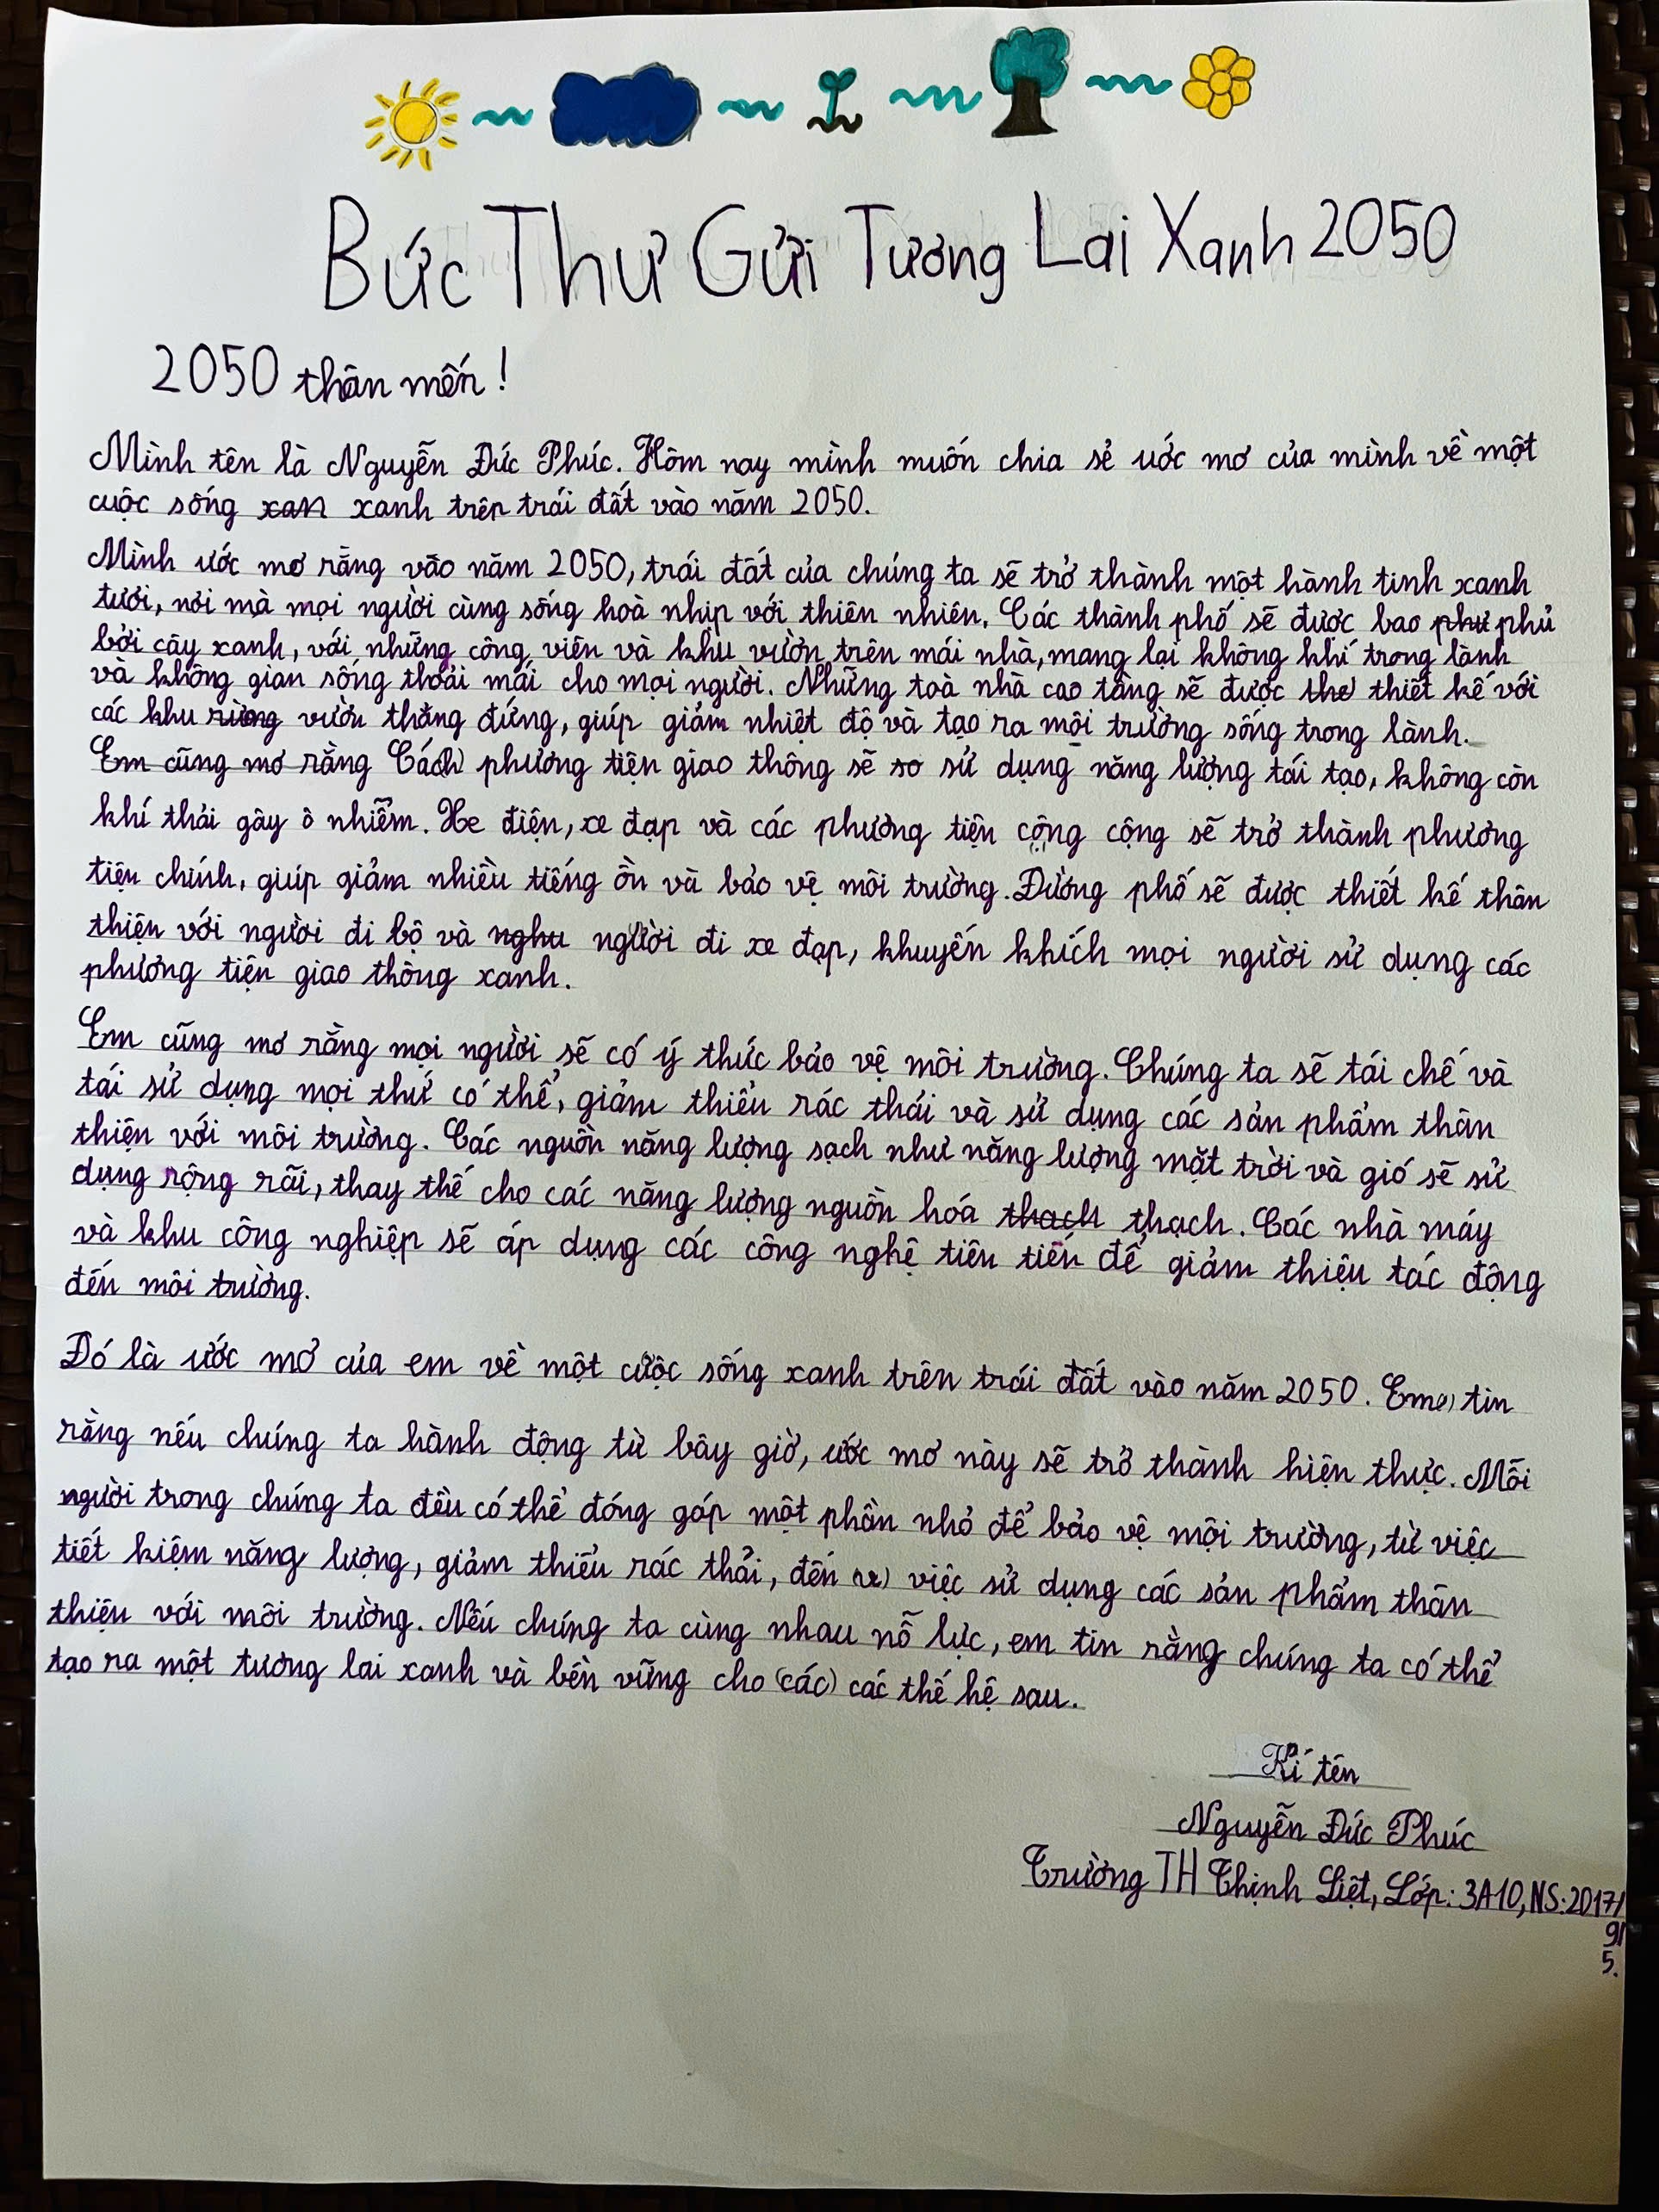 Bức Thư Gửi Tương Lai Xanh 2050
2050 thân mến!
Mình tên là Nguyễn Đức Phúc. Hôm nay mình muốn chia sẻ ước mơ của mình về một
cuộc sống xan xanh trên trái đất vào năm 2050.
Mình ước mơ rằng vào năm 2050, trái đất của chúng ta sẽ trở thành một hành tinh xanh
tươi, nơi mà mọi người cùng sống hoà nhịp với thiên nhiên. Các thành phố sẽ được bao phu phủ
bởi cây xanh, với những công viên và khu vườn trên mái nhà, mang lại không khí trong lành
và không gian sống thoải mái cho mọi người. Những toà nhà cao tầng sẽ được the thiết kế với
các khu rừng vườn thẳng đứng, giúp giảm nhiệt độ và tạo ra môi trường sống trong lành.
Em cũng mơ rằng Các(h) phương tiện giao thông sẽ so sử dụng năng lượng tái tạo, không còn
khí thải gây ô nhiễm. Xe điện, xe đạp và các phương tiện công cộng sẽ trở thành phương
tiện chính, giúp giảm nhiều tiếng ồn và bảo vệ môi trường. Đường phố sẽ được thiết kế thân
thiện với người đi bộ và nghu người đi xe đạp, khuyến khích mọi người sử dụng các
phương tiện giao thông xanh.
Em cũng mơ rằng mọi người sẽ có ý thức bảo vệ môi trường. Chúng ta sẽ tái chế và
tái sử dụng mọi thứ có thể, giảm thiểu rác thải và sử dụng các sản phẩm thân
thiện với môi trường. Các nguồn năng lượng sạch như năng lượng mặt trời và gió sẽ sử
dụng rộng rãi, thay thế cho các năng lượng nguồn hóa thach thạch. Các nhà máy
và khu công nghiệp sẽ áp dụng các công nghệ tiên tiến để giảm thiệu tác động
đến môi trường.
Đó là ước mơ của em về một cuộc sống xanh trên trái đất vào năm 2050. Em tin
rằng nếu chúng ta hành động từ bây giờ, ước mơ này sẽ trở thành hiện thực. Mỗi
người trong chúng ta đều có thể đóng góp một phần nhỏ để bảo vệ môi trường, từ việc
tiết kiệm năng lượng, giảm thiểu rác thải, đến việc sử dụng các sản phẩm thân
thiện với môi trường. Nếu chúng ta cùng nhau nỗ lực, em tin rằng chúng ta có thể
tạo ra một tương lai xanh và bền vững cho (các) các thế hệ sau.
Kí tên
Nguyễn Đức Phúc
Trường TH Thịnh Liệt, Lớp: 3A10, NS: 2017/
9/
5.